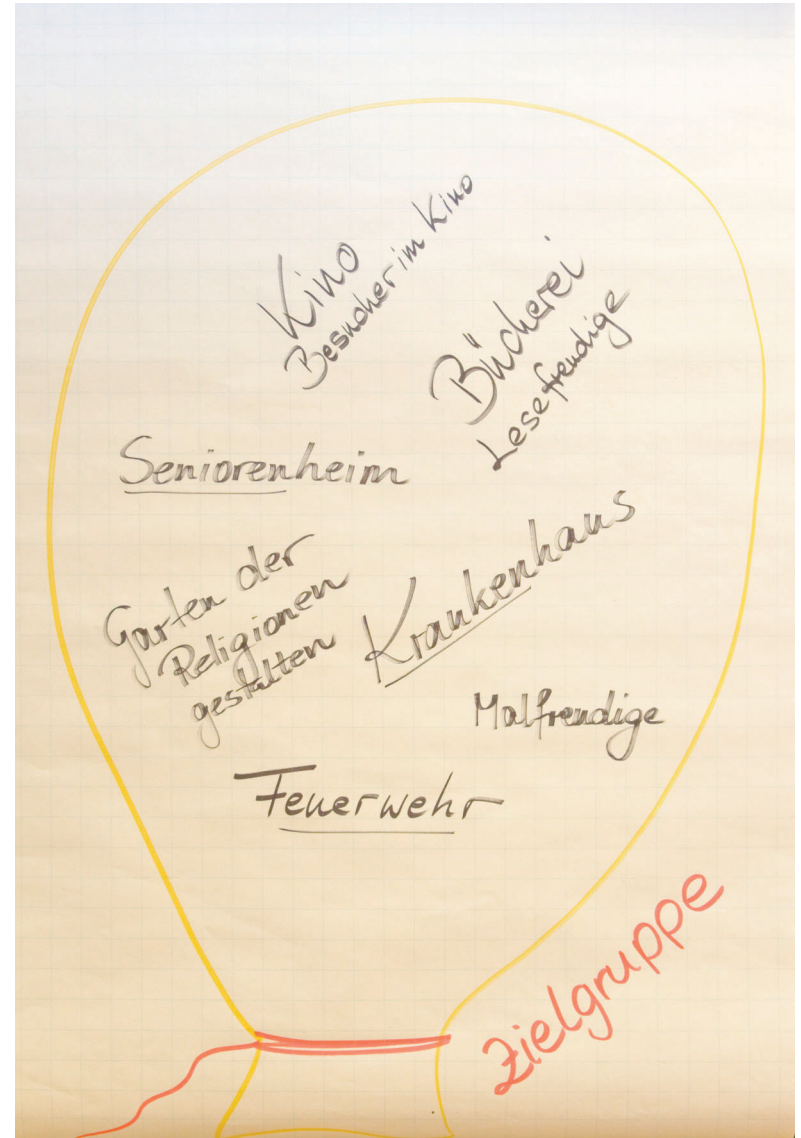 Kino
Besucher im Kino
Bücherei
Lesefreudige
Seniorenheim
Garten der
Religionen
gestalten
Krankenhaus
Malfreudige
Feuerwehr
Zielgruppe